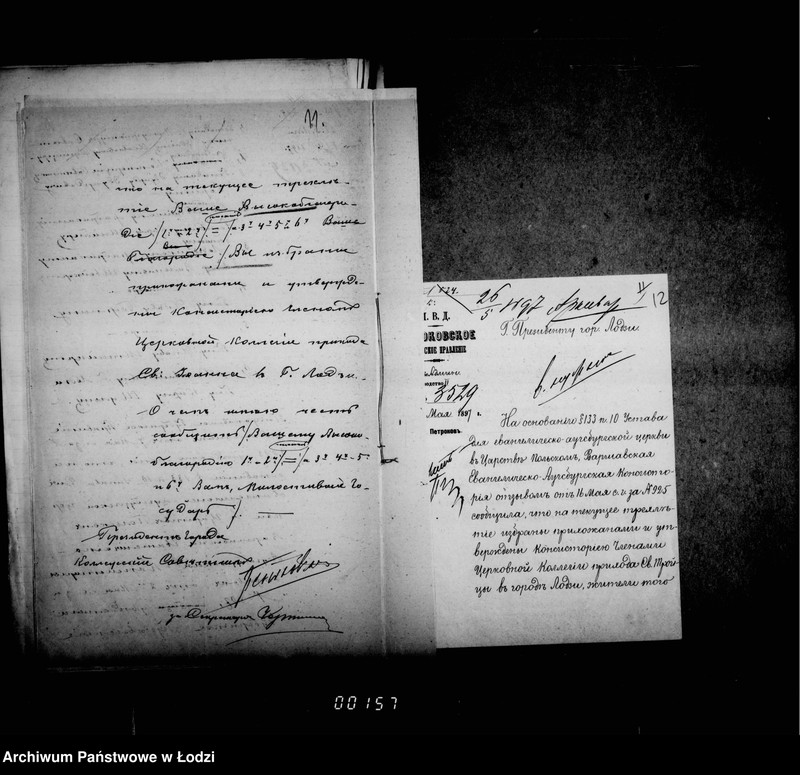 11.
что на текущее трехлѣ-
тіе Ваше Высокоблагоро-
діе /1º-2º/=/-3º 4º 5º 6º Ваше
Благородіе / Вы избраны
прихожанами и утвержде-
ны Консисторіею Членомъ
Церковной Коллегіи прихода
Св. Іоанна в г. Лодзи.
О чемъ имѣю честь
сообщить / Вашему Высоко-
благородію 1º-2º/=/-3º 4º-5
и 6º Вамъ, Милостивый Го-
сударь / —
Президентъ города
Коллежскій Совѣтникъ
за Секретаря
1824.
26/5 1897 Архивар 11 12
М. В. Д.
Г. Президенту гор. Лодзи.
ОКОВСКОЕ
СКОЕ ПРАВЛЕНІЕ
3529
Мая 1897 г.
Петроковъ.
На основаніи § 133 п. 10 Устава
для евангелическо-аугсбургской церкви
въ Царствѣ Польскомъ, Варшавская
Евангелическо-Аугсбургская Консисто-
рія отзывомъ отъ 16 Мая с. г. за № 925
сообщила, что на текущее трехлѣ-
тіе избраны прихожанами и ут-
верждены Консисторіею Членами
Церковной Коллегіи прихода Св. Трой-
цы въ городѣ Лодзи, жители того
00157
Archiwum Państwowe w Łodzi